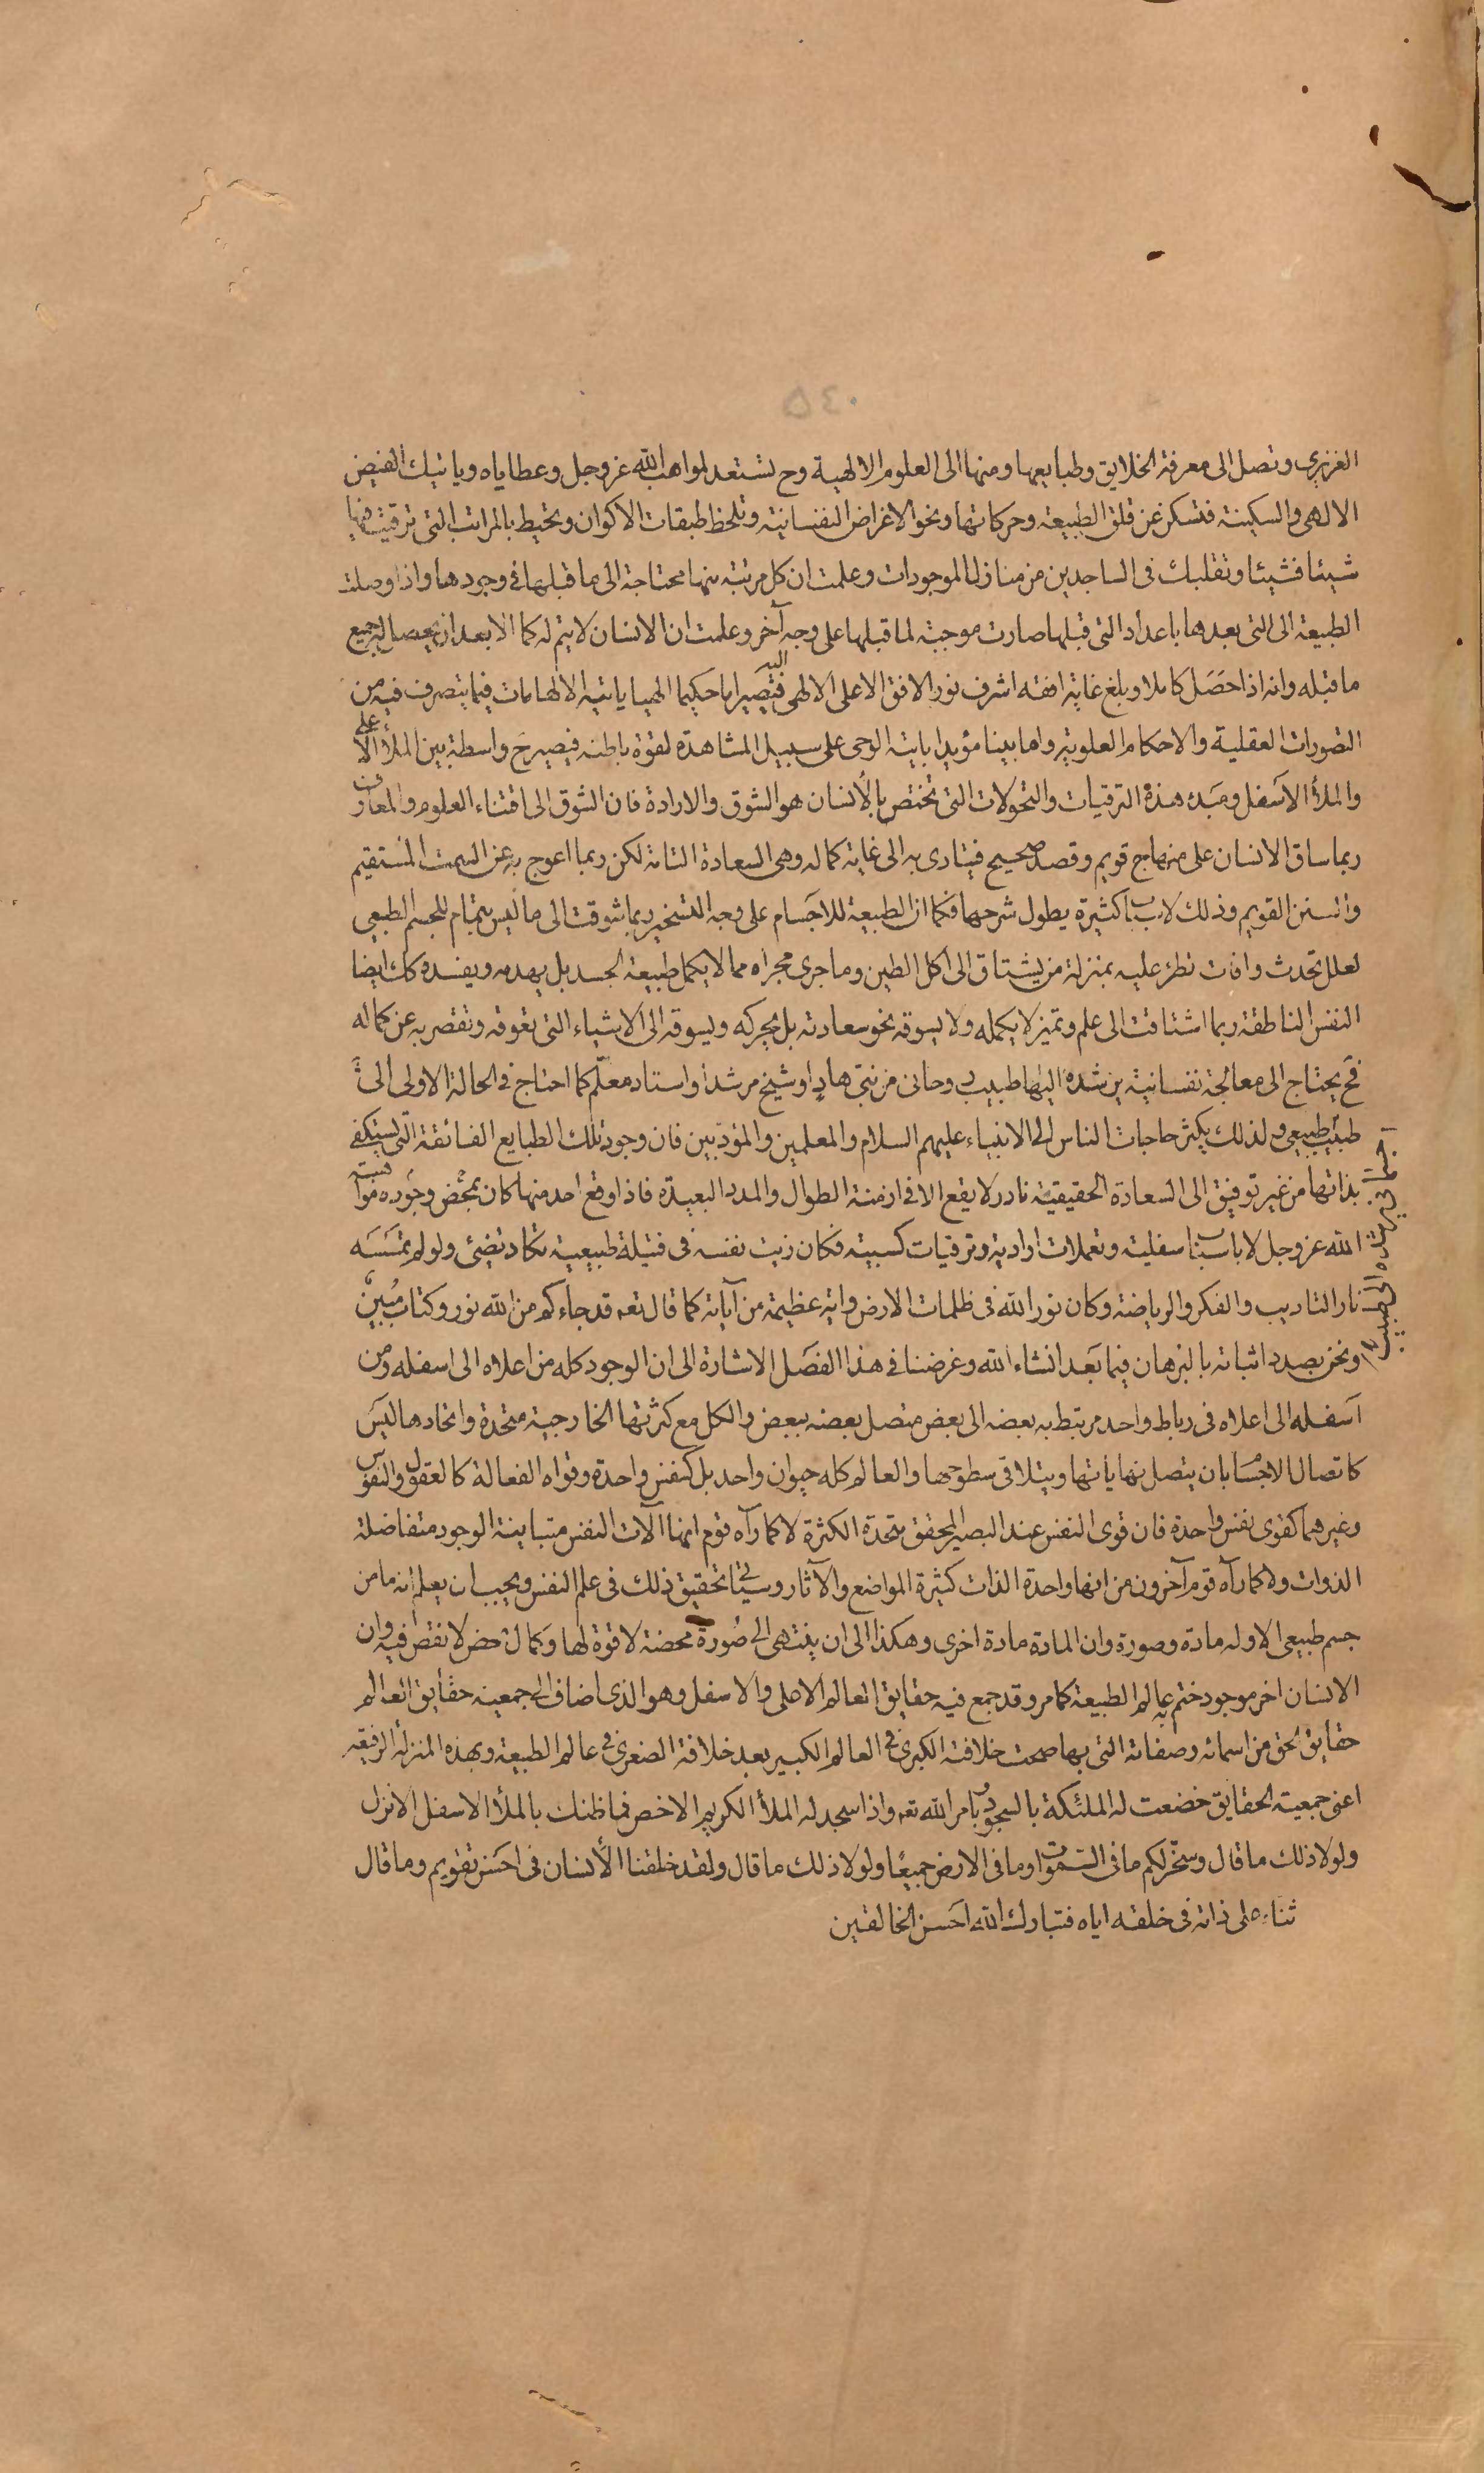 ٥٤٠
الغزيرى وتصل الى معرفة الخلايق وطبايعها ومنها الى العلوم الالهية وح تستعد لمواهب الله عز وجل وعطاياه وياتيك الفيض
الالهى والسكينة فتسكن عن قلق الطبيعة وحركاتها ونحو الاغراض النفسانية وتلحظ طبقات الاكوان وتحيط بالمراتب التى ترقيت فيها
شيئا فشيئا وتقلبك فى الساجدين من منازل الموجودات وعلمت ان كل مرتبة منها محتاجة الى ما قبلها فى وجودها واذا وصلت
الطبيعة الى التى بعدها باعداد التى قبلها صارت موجبة لما قبلها على وجه آخر وعلمت ان الانسان لا يتم له كما الا بعد ان يحصل له جميع
ما قبله وانه اذا حصل كاملا وبلغ غاية افقه اشرف نور الافق الاعلى الالهى اليه فتصير اما حكيما الهيا ياتيه الالهامات فيما يتصرف فيه من
التصورات العقلية والاحكام العلوية واما بينا مؤيدا ياتيه الوحى على سبيل المشاهدة لقوة باطنه فيصير ح واسطة بين الملأ الاعلى
والملأ الاسفل ومبدء هذه الترقيات والتحولات التى تختص بالأنسان هو الشوق والارادة فان الشوق الى اقتناء العلوم والمعارف
ربما ساق الانسان على منهاج قويم وقصد صحيح فيتادى به الى غاية كماله وهى السعادة التامة لكن ربما اعوج به عن السمت المستقيم
والسنن القويم وذلك لاسباب كثيرة يطول شرحها فكما ان الطبيعة للاجسام على وجه التسخير ربما شوقت الى ما ليس بتمام للجسم الطبيعى
لعلل تحدث وافات تطرء عليه بمنزلة من يشتاق الى اكل الطين وما جرى مجراه مما لا يكمل طبيعة الجسد بل يهدمه ويفسده كك ايضا
النفس الناطقة ربما اشتاقت الى علم وتميز لا يكمله ولا يسوقه نحو سعادته بل يحركه ويسوقه الى الاشياء التى تعوقه وتقصر به عن كماله
فح يحتاج الى معالجة نفسانية يرشده اليها طبيب روحانى من نبىّ هادٍ او شيخ مرشد او استاد معلّم كما احتاج فى الحالة الاولى الى
طبيب طبيعى ولذلك يكثر حاجات الناس الى الانبياء عليهم السلام والمعلمين والمؤدبين فان وجود تلك الطبايع الفائقة التى يستكفى
بذاتها من غير توفيق الى السعادة الحقيقيّة نادر لا يقع الا فى ازمنة الطوال والمدد البعيدة فاذا وقع احد منها كان بمحض وجوده موهبة
الله عز وجل لا باسباب سفلية وتعملات ارادية وترقيات كسبية فكان زيت نفسه فى فتيلة طبيعية تكاد تضيئ ولو لم تمسسه
نار التاديب والفكر والرياضة وكان نور الله فى ظلمات الارض واية عظيمة من آياته كما قال تعه قد جاءكم من الله نور وكتاب مُبينٌ
ونحن بصدد اثباته بالبرهان فيما بعد انشاء الله وغرضنا فى هذا الفصل الاشارة الى ان الوجود كله من اعلاه الى اسفله ومن
اسفله الى اعلاه فى رباط واحد مرتبط به بعضه الى بعض متصل بعضه ببعض والكل مع كثرتها الخارجية متحدة واتحادها ليس
كاتصال الاجسام بان يتصل نهاياتها ويتلاقى سطوحها والعالم كله حيوان واحد بل كنفس واحدة وقواه الفعالة كالعقول والنفوس
وغيرهما كقوى نفس واحدة فان قوى النفس عند البصير المحقق متحدة الكثرة لا كما رآه قوم انها آلات النفس متباينة الوجود متفاضلة
الذوات ولا كما رآه قوم آخرون من انها واحدة الذات كثيرة المواضع والآثار وسياتى تحقيق ذلك فى علم النفس ويجب ان يعلم انه ما من
جسم طبيعى الا وله مادة وصورة وان المادة مادة اخرى وهكذا الى ان ينتهى الى صُورة محضة لا قوة لها وكمال محض لا نقص فيه وان
الانسان اخر موجود ختم به عالم الطبيعة كما مر وقد جمع فيه حقايق العالم الاعلى والاسفل وهو الذى اضاف الى جمعية حقايق العالم
حقايق الحق من اسمائه وصفاته التى بها صحت خلافة الكبرى فى العالم الكبير بعد خلافة الصغرى فى عالم الطبيعة وبهذه المنزلة الرفيعة
اعنى جمعية الحقايق خضعت له الملئكة بالسجود بامر الله تعه واذا سجد له الملأ الكريم الاخص فما ظنك بالملأ الاسفل الانزل
ولولا ذلك ما قال وسخّر لكم ما فى السموات وما فى الارض جميعًا ولولا ذلك ما قال ولقد خلقنا الأنسان فى احسن تقويم وما قال
ثناء على ذاته فى خلقه اياه فتبارك الله احسن الخالقين